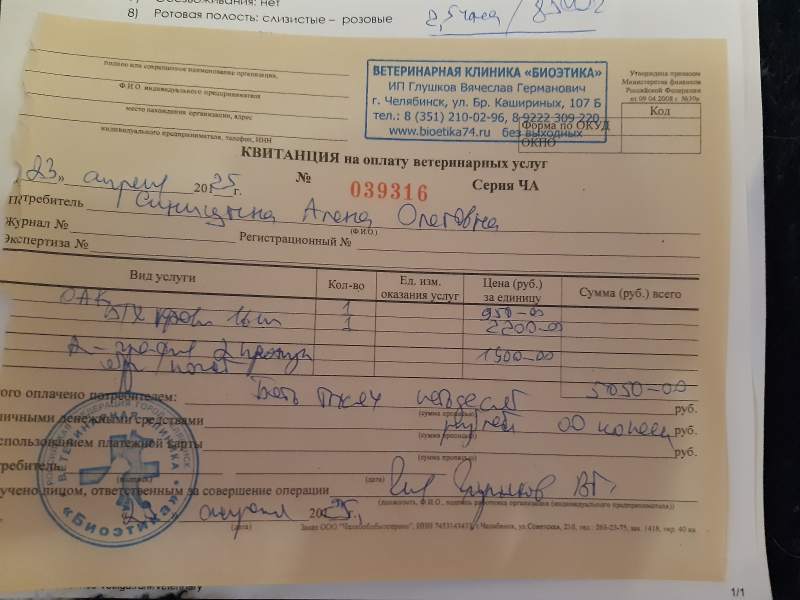 8) Ротовая полость: слизистые – розовые
полное или сокращенное наименование организации,
Ф.И.О. индивидуального предпринимателя
место нахождения организации, адрес
индивидуального предпринимателя, телефон, ИНН
ВЕТЕРИНАРНАЯ КЛИНИКА «БИОЭТИКА»
ИП Глушков Вячеслав Германович
г. Челябинск, ул. Бр. Кашириных, 107 Б
тел.: 8 (351) 210-02-96, 8 9222 309 220
www.bioetika74.ru без выходных
Утверждена приказом
Министерства финансов
Российской Федерации
от 09.04.2008 г. №39н
Код
Форма по ОКУД
ОКПО
КВИТАНЦИЯ на оплату ветеринарных услуг
23 » апреля 2025 г. № 039316 Серия ЧА
Потребитель Синицына Алена Олеговна
(Ф.И.О.)
Журнал № Регистрационный №
Экспертиза №
Вид услуги Кол-во Ед. изм. оказания услуг Цена (руб.) за единицу Сумма (руб.) всего
ОАК 1 950-00
БТХ крови 1 2200-00
1900-00
5050-00
его оплачено потребителем: пятьдесят руб.
(сумма прописью)
личными денежными средствами рублей 00 копеек руб.
(сумма прописью)
использованием платежной карты руб.
(сумма прописью)
требитель
(дата)
учено лицом, ответственным за совершение операции Глушков ВГ
(должность, Ф.И.О., подпись работника организации (индивидуального предпринимателя))
апреля 2025 г.
(дата)
ВЕТЕРИНАРНАЯ КЛИНИКА
«Биоэтика»
1/1